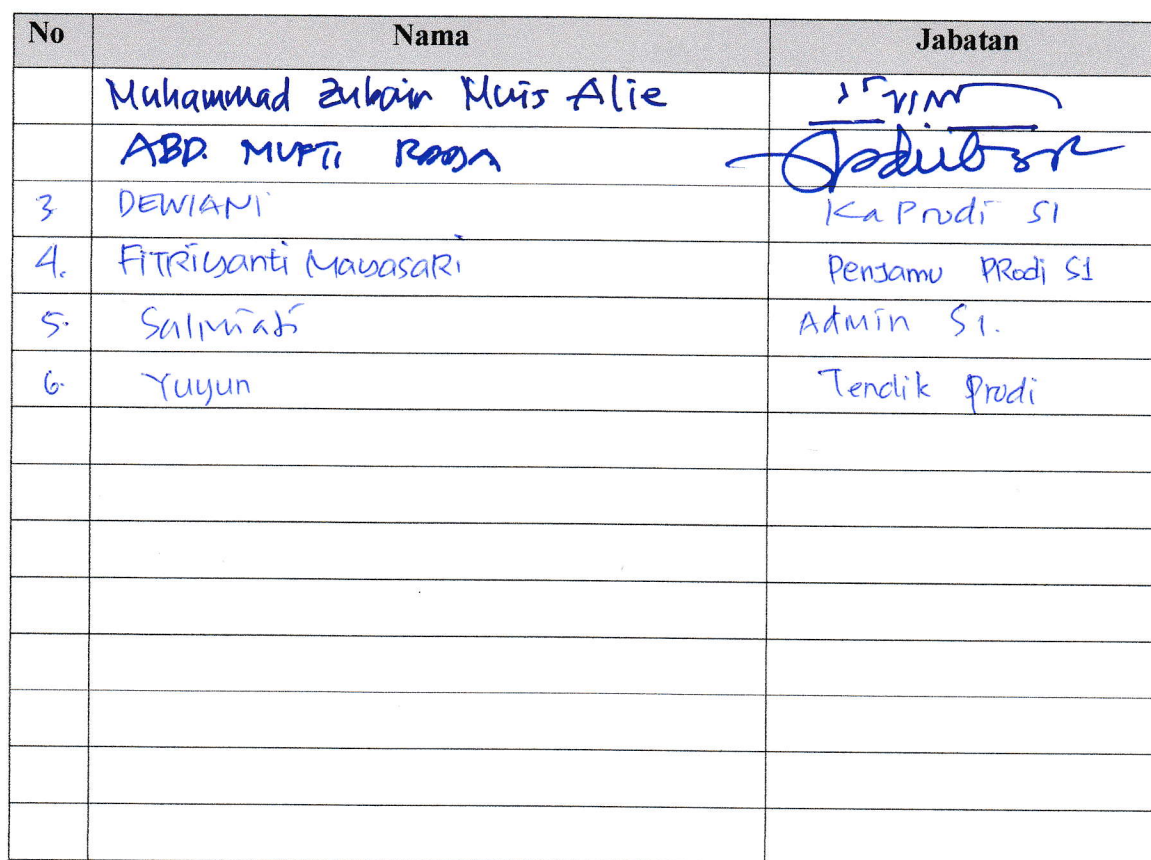 No Nama Jabatan
Muhammad Zubair Muis Alie
ABD. MUFTI
3 DEWIANI Ka Prodi S1
4. FITRiyanti MayasaRi Penjamu PRodi S1
5. Salmiati Admin S1.
6. Yuyun Tendik Prodi